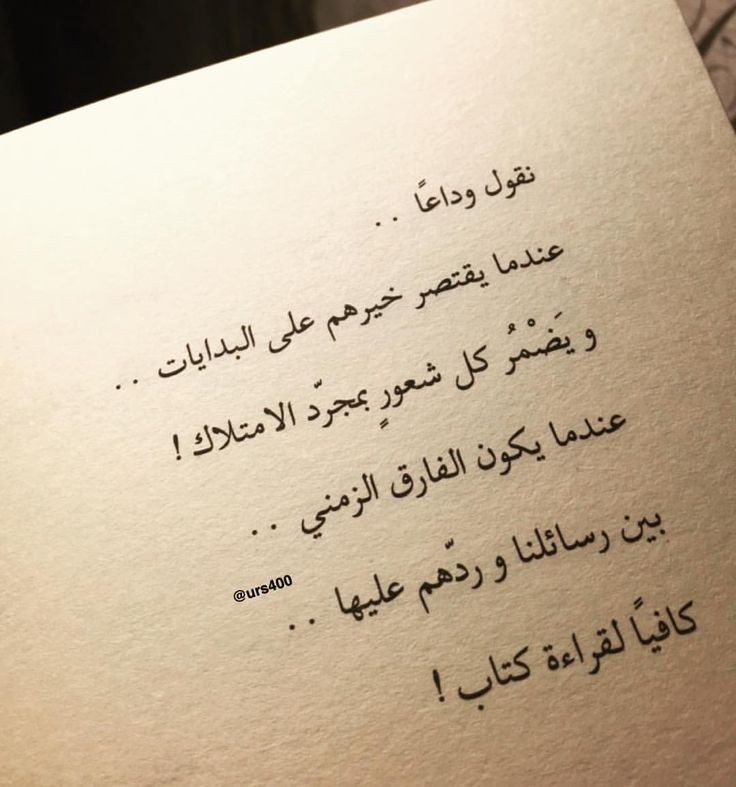 نقول وداعاً ..
عندما يقتصر خيرهم على البدايات ..
و يَضْمُرُ كل شعورٍ بمجرّد الامتلاك !
عندما يكون الفارق الزمني ..
بين رسائلنا و ردّهم عليها ..
@urs400
كافياً لقراءة كتاب !